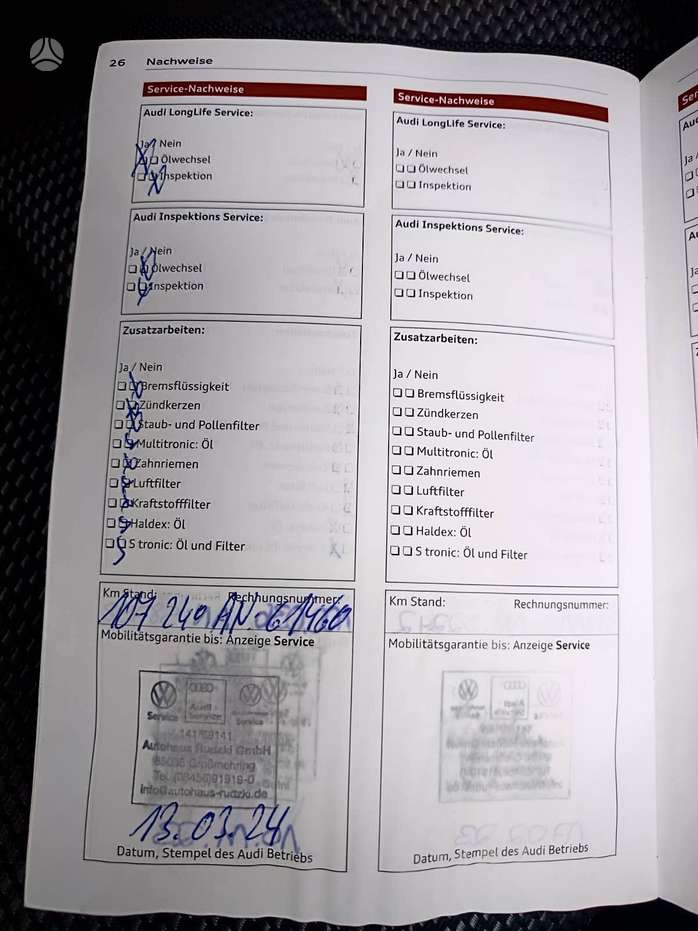 26 Nachweise
Service-Nachweise
Audi LongLife Service:
Ja / Nein
Ölwechsel
Inspektion
Audi Inspektions Service:
Ja / Nein
Ölwechsel
Inspektion
Zusatzarbeiten:
Ja / Nein
Bremsflüssigkeit
Zündkerzen
Staub- und Pollenfilter
Multitronic: Öl
Zahnriemen
Luftfilter
Kraftstofffilter
Haldex: Öl
S tronic: Öl und Filter
Km Stand: Rechnungsnummer:
107 240 AN. 61460
Mobilitätsgarantie bis: Anzeige Service
Service Audi Service Service
Autohaus Rudzki GmbH
85098 Großmehring
info@autohaus-rudzki.de
13.03.24
Datum, Stempel des Audi Betriebs
Service-Nachweise
Audi LongLife Service:
Ja / Nein
Ölwechsel
Inspektion
Audi Inspektions Service:
Ja / Nein
Ölwechsel
Inspektion
Zusatzarbeiten:
Ja / Nein
Bremsflüssigkeit
Zündkerzen
Staub- und Pollenfilter
Multitronic: Öl
Zahnriemen
Luftfilter
Kraftstofffilter
Haldex: Öl
S tronic: Öl und Filter
Km Stand: Rechnungsnummer:
Mobilitätsgarantie bis: Anzeige Service
Datum, Stempel des Audi Betriebs